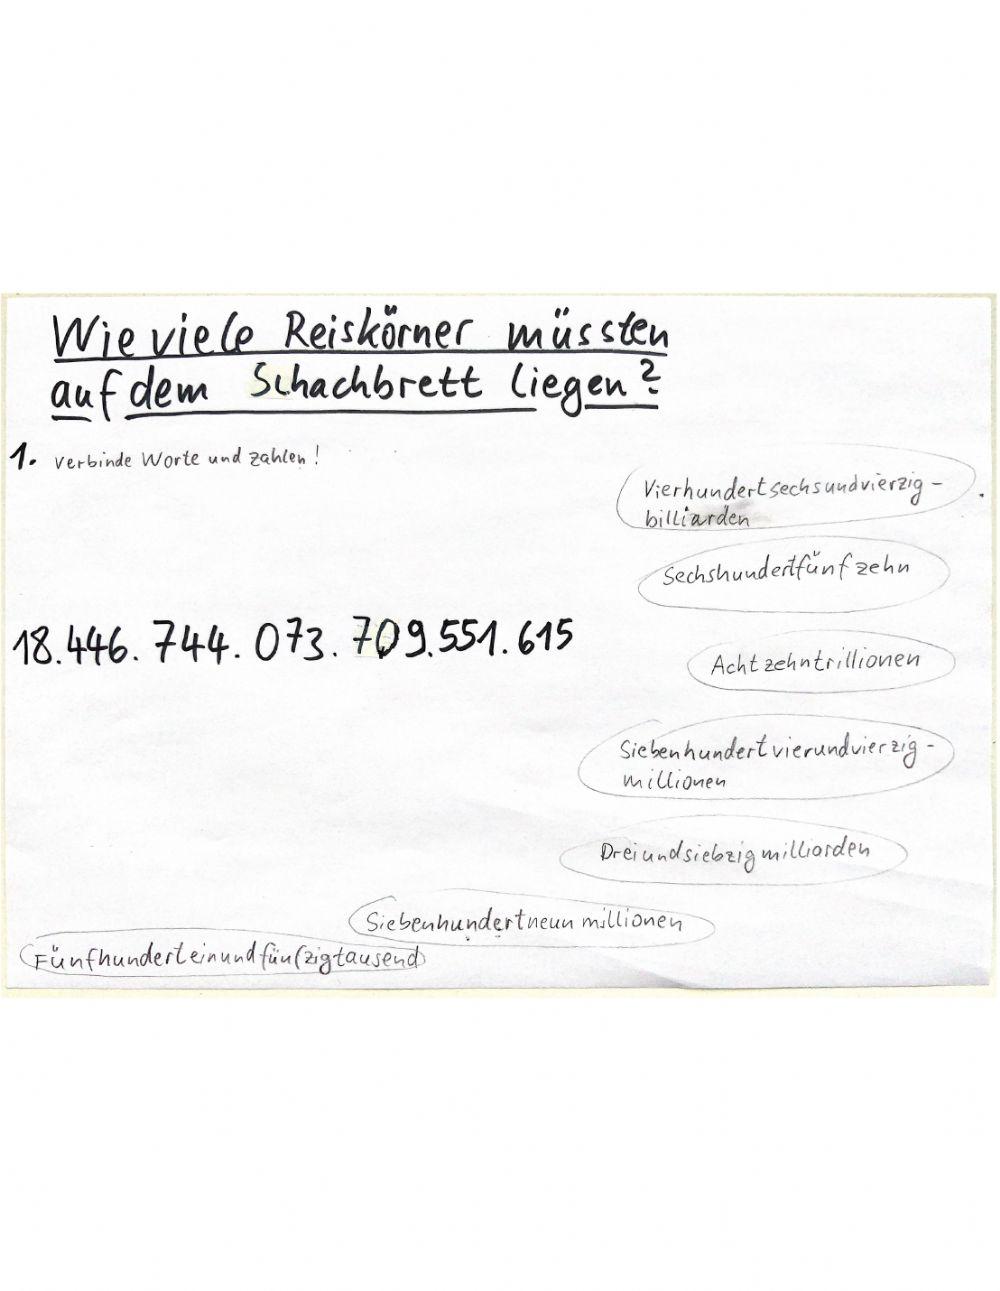 Wie viele Reiskörner müssten
auf dem Schachbrett liegen?
1. Verbinde Worte und zahlen!
Vierhundertsechsundvierzig-
billiarden
Sechshundertfünfzehn
18.446.744.073.709.551.615
Achtzehntrillionen
Siebenhundertvierundvierzig-
millionen
Dreiundsiebzigmilliarden
Siebenhundertneunmillionen
Fünfhunderteinundfünfzigtausend